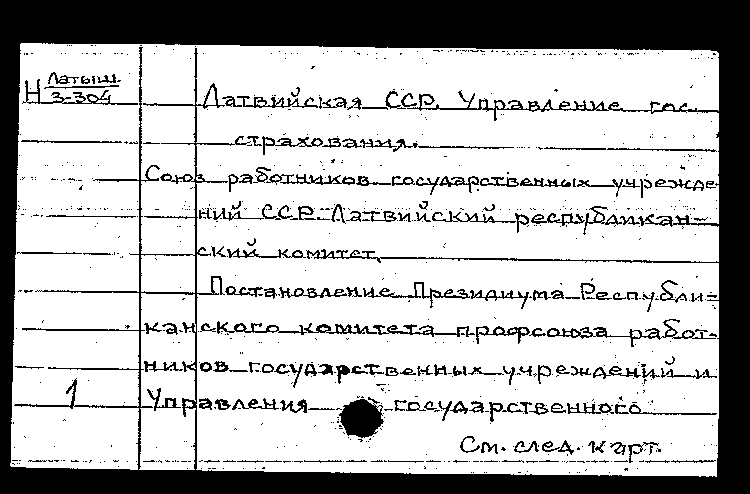 Латыш.
Н 3-304
Латвийская ССР. Управление гос.
страхования.
Союз работников государственных учрежде
ний ССР. Латвийский республикан-
ский комитет.
Постановление Президиума Республи-
канского комитета профсоюза работ-
ников государственных учреждений и
1 Управления государственного
См. след. карт.